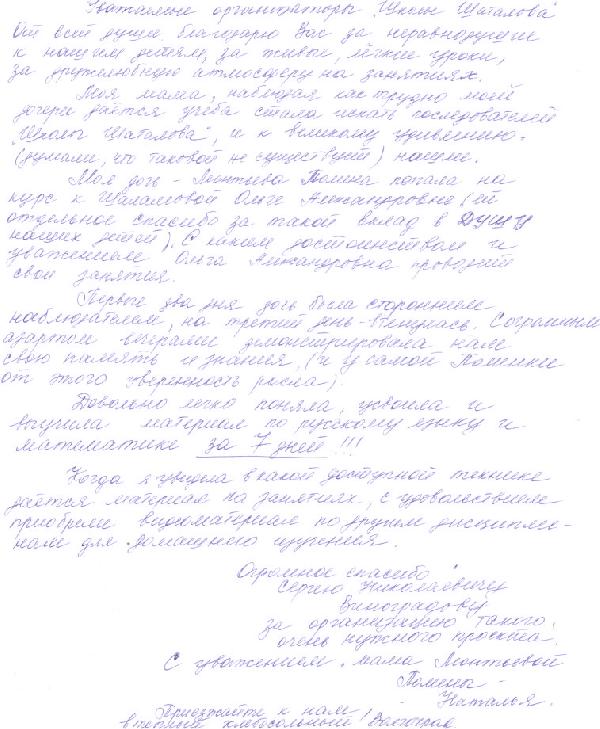 Уважаемые организаторы "Школы Шаталова"
От всей души благодарю Вас за неравнодушие
к нашим детям, за живые, лёгкие уроки,
за дружелюбную атмосферу на занятиях.
Моя мама, наблюдая как трудно моей
дочери даётся учеба стала искать последователей
"Школы Шаталова", и к великому удивлению
(думали, что таковой не существует) нашла.
Моя дочь - Леонтьева Полина попала на
курс к Шаламовой Ольге Александровне (ей
отдельное спасибо за такой вклад в ДУШУ
наших детей). С каким достоинством и
уважением Ольга Александровна проводит
свои занятия.
Первые два дня дочь была сторонним
наблюдателем, на третий день - втянулась. С огромным
азартом вечерами демонстрировала нам
свою память и знания, (и у самой Полинки
от этого уверенность росла).
Довольно легко поняла, усвоила и
выучила материал по русскому языку и
математике за 7 дней!!!
Когда я увидела в какой доступной технике
даётся материал на занятиях, с удовольствием
приобрели видеоматериал по другим дисципли-
нам для домашнего изучения.
Огромное спасибо
Сергею Николаевичу
Виноградову
за организацию такого,
очень нужного проекта.
С уважением, мама Леонтьевой
Полины -
- Наталья.
Приезжайте к нам
в теплый хлебосольный Волгоград!